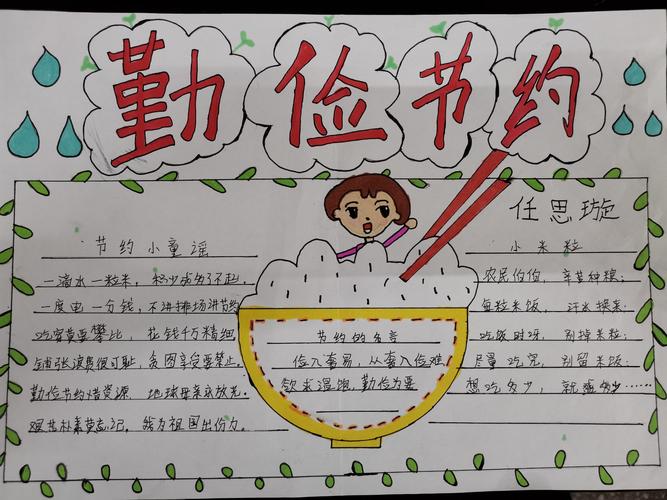 勤俭节约
任思璇
节约小童谣
一滴水一粒米，积少成多了不起。
一度电一分钱，不讲排场讲节约
吃穿莫要攀比，花钱千万精细
铺张浪费很可耻，贪图享受要禁止。
勤俭节约惜资源，地球母亲永放光。
艰苦朴素莫忘记，我为祖国出份力。
节约的名言
俭入奢易，从奢入俭难
饮求温饱，勤俭为要
小米粒
农民伯伯，辛苦种粮；
每粒米饭，汗水换来；
吃饭时呀，别掉米粒；
尽量吃完，别留米饭；
想吃多少，就盛多少……